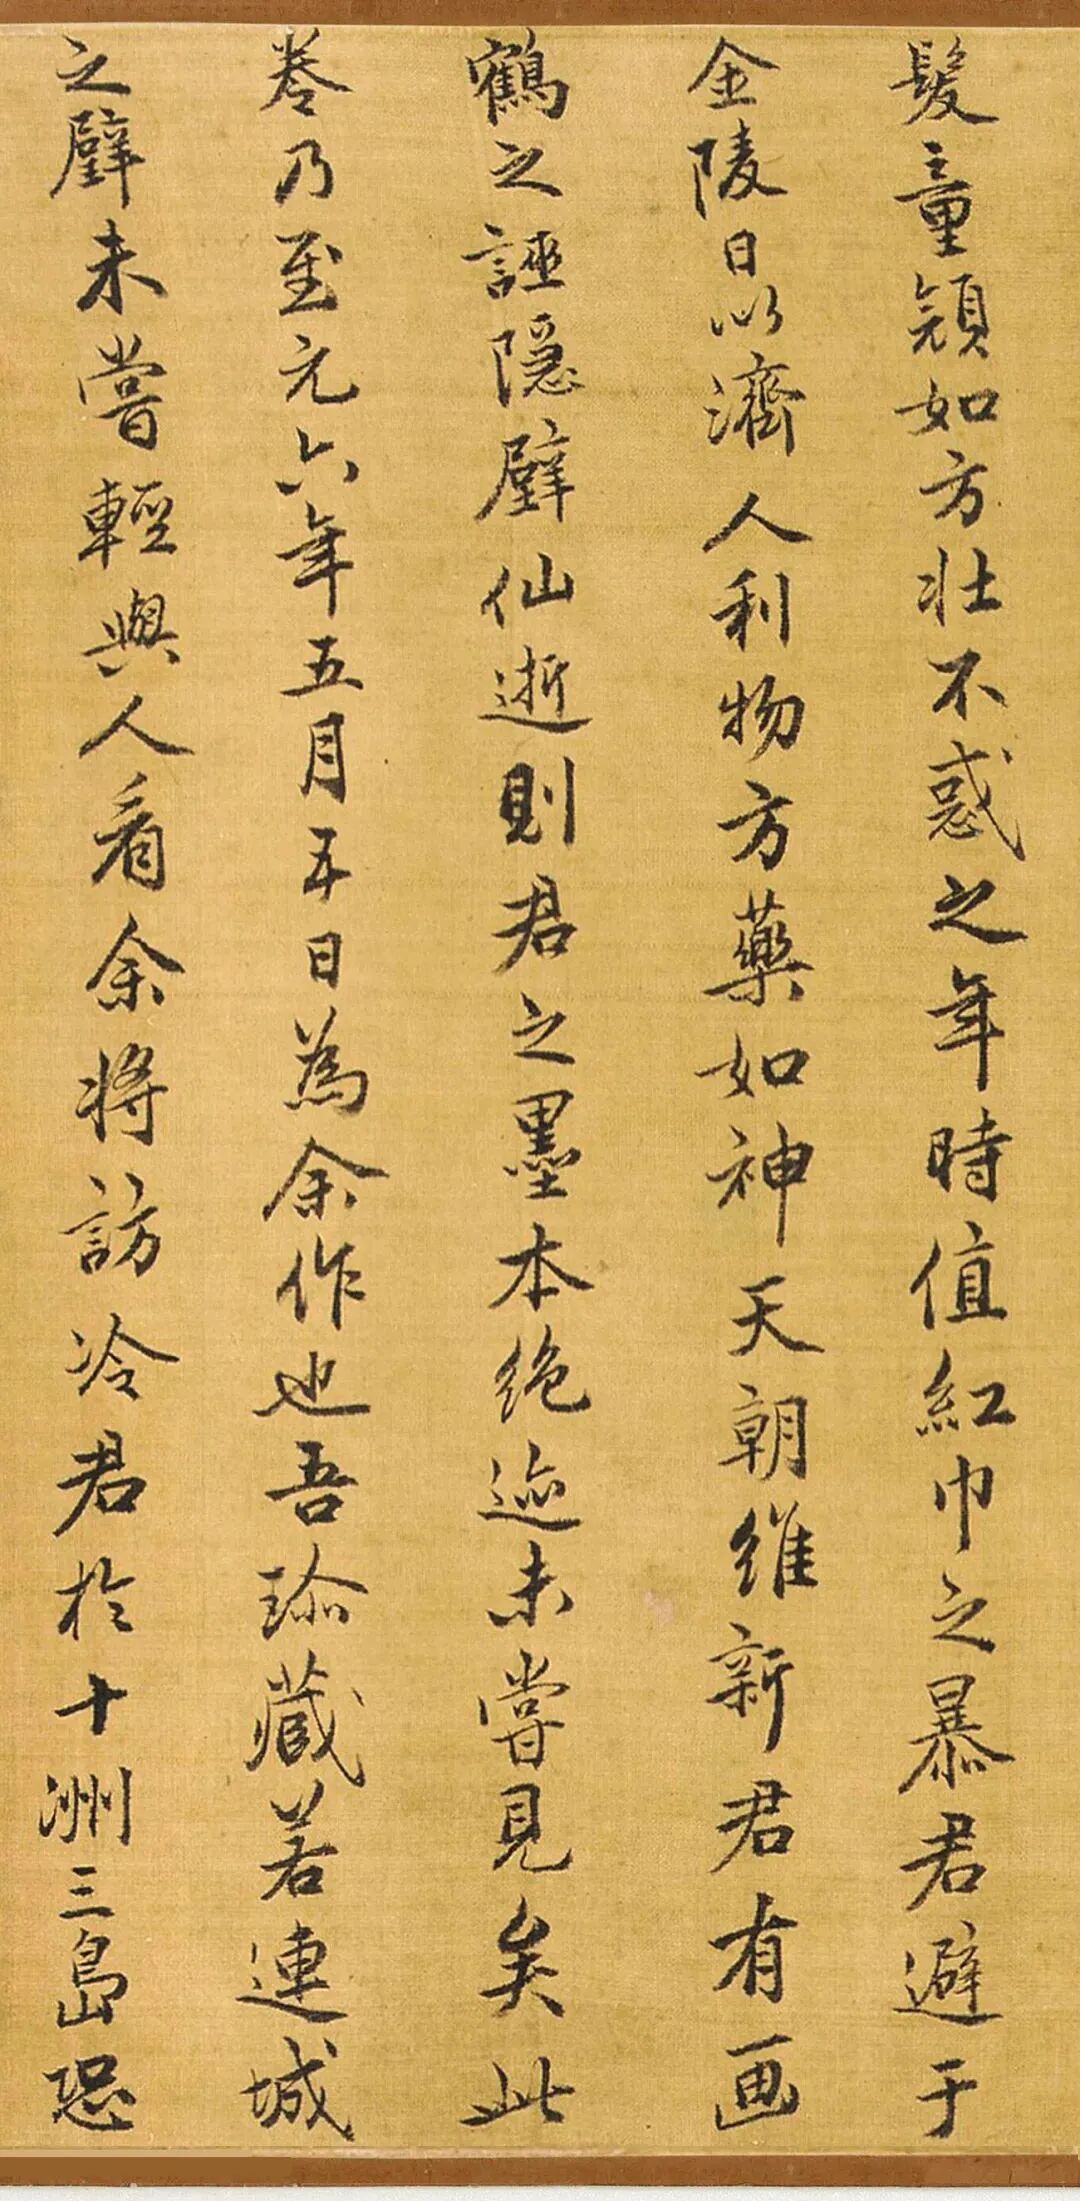 髮童顔如方壯不惑之年時值紅巾之暴君避于
金陵日以濟人利物方藥如神天朝維新君有画
鶴之誣隱壁仙逝則君之墨本絕迹未嘗見矣此
卷乃至元六年五月五日為余作也吾珎藏若連城
之璧未嘗輕與人看余將訪冷君於十洲三島恐